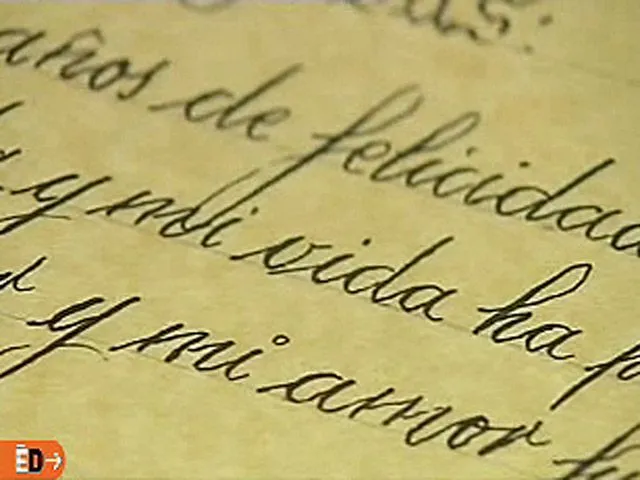 años de felicidad
y mi vida ha
y mi amor
ED